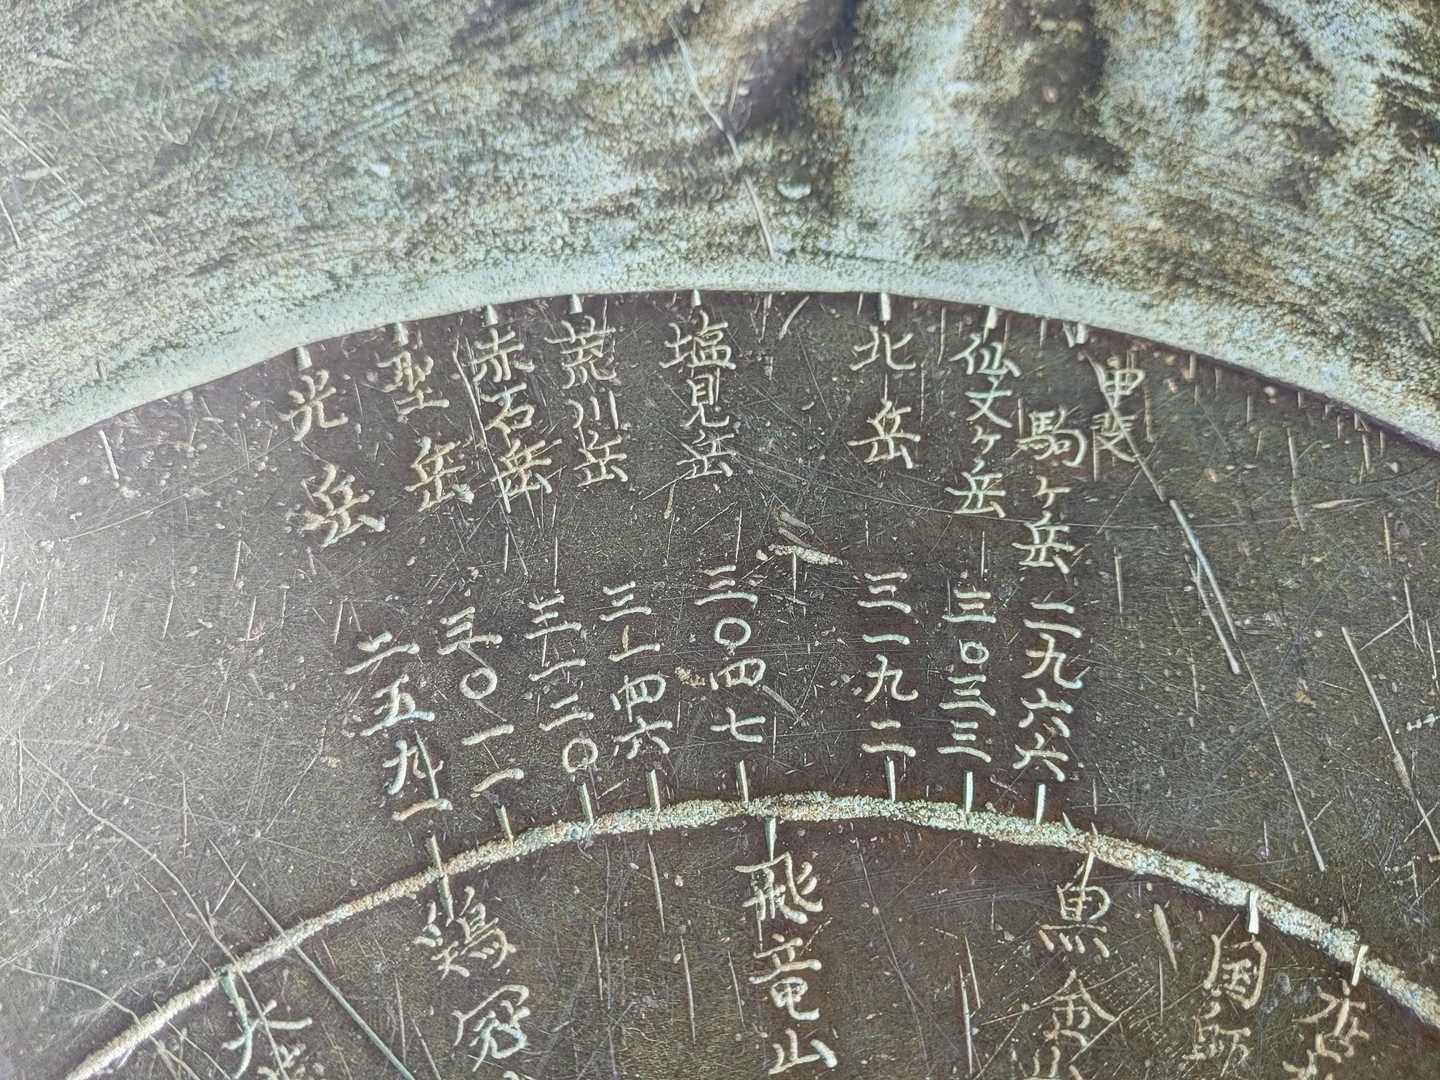 甲斐駒ヶ岳 二九六六
仙丈ヶ岳 三〇三三
北岳 三一九二
塩見岳 三〇四七
荒川岳 三一四六
赤石岳 三一二〇
聖岳 三〇一一
光岳 二五九一
国師
黒金山
飛竜山
鶏冠
大